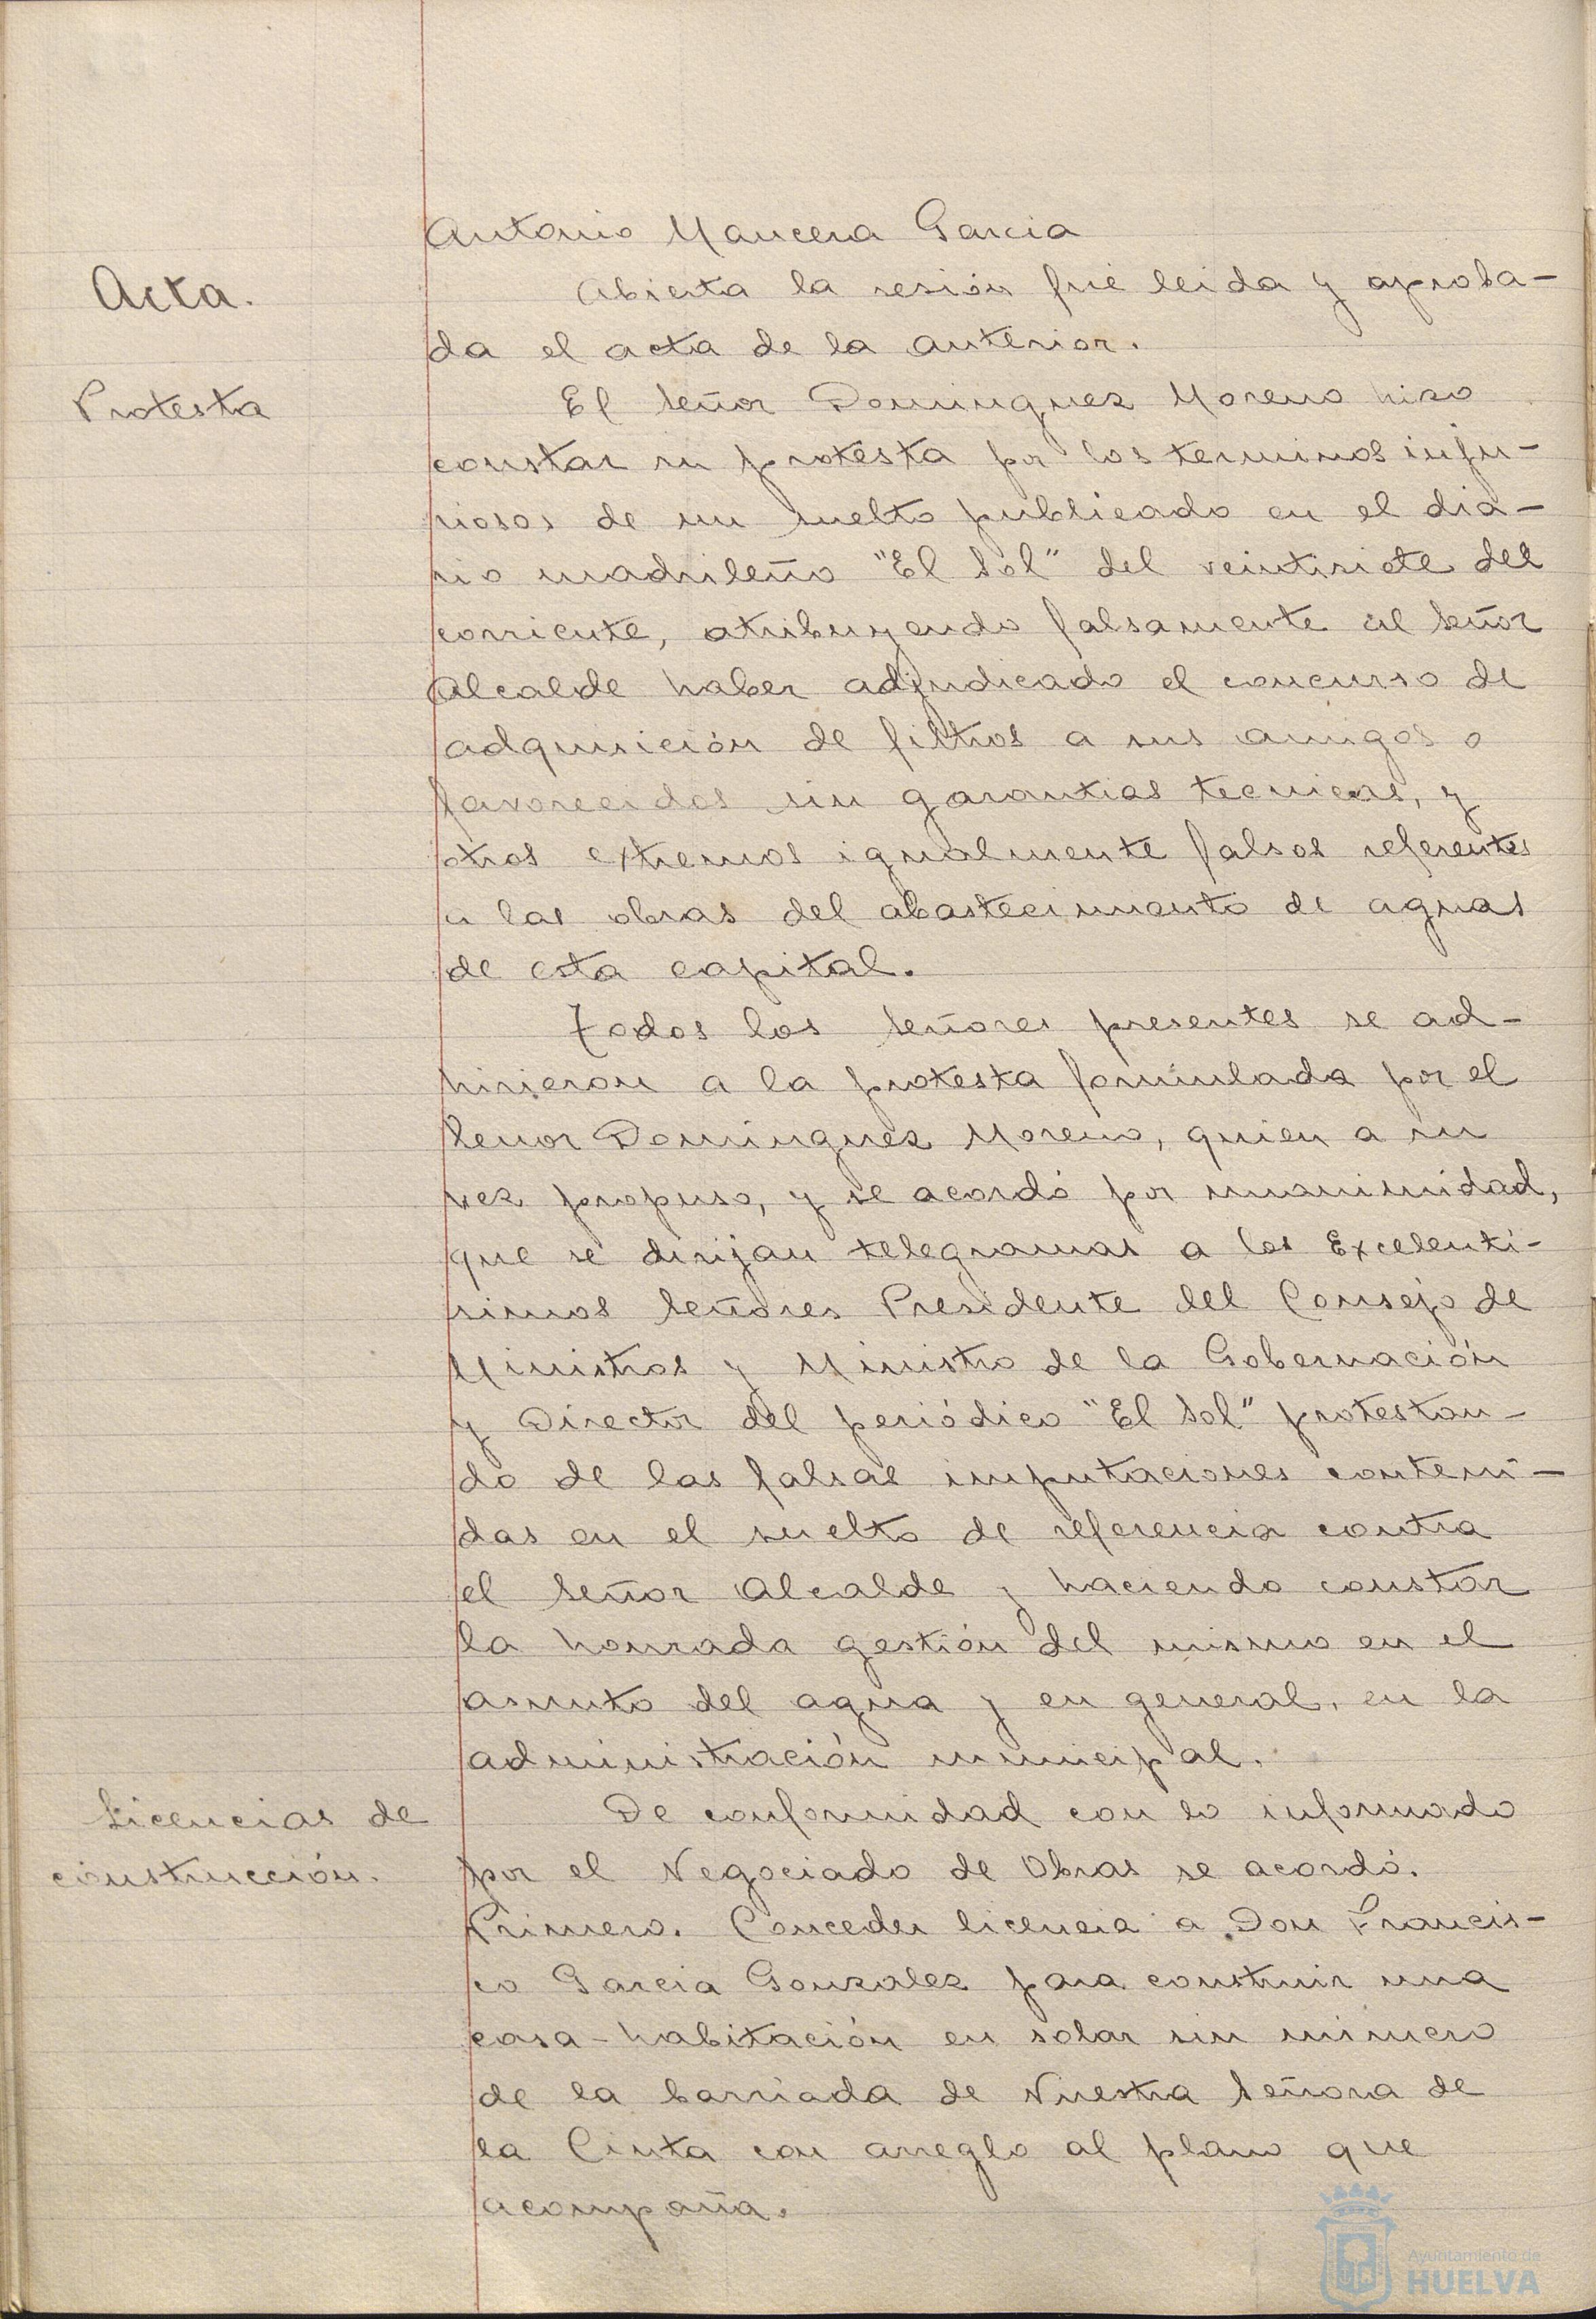 Antonio Mancera Garcia
Acta.
Abierta la sesión fué leida y aproba-
da el acta de la anterior.
Protesta
El Señor Dominguez Moreno hizo
constar su protesta por los terminos inju-
riosos de un suelto publicado en el dia-
rio madrileño "El Sol" del veintisiete del
corriente, atribuyendo falsamente al Señor
Alcalde haber adjudicado el concurso de
adquisición de filtros a sus amigos o
favorecidos sin garantias tecnicas, y
otros extremos igualmente falsos referentes
a las obras del abastecimiento de aguas
de esta capital.
Todos los Señores presentes se ad-
hirieron a la protesta formulada por el
Señor Dominguez Moreno, quien a su
vez propuso, y se acordó por unanimidad,
que se dirijan telegramas a los Excelenti-
simos Señores Presidente del Consejo de
Ministros y Ministro de la Gobernación
y Director del periódico "El Sol" protestan-
do de las falsas imputaciones conteni-
das en el suelto de referencia contra
el Señor Alcalde y haciendo constar
la honrada gestión del mismo en el
asunto del agua y en general, en la
administración municipal.
Licencias de
construcción.
De conformidad con lo informado
por el Negociado de Obras se acordó.
Primero. Conceder licencia a Don Francis-
co Garcia Gonzalez para construir una
casa-habitación en solar sin número
de la barriada de Nuestra Señora de
la Cinta con arreglo al plano que
acompaña.
Ayuntamiento de
HUELVA